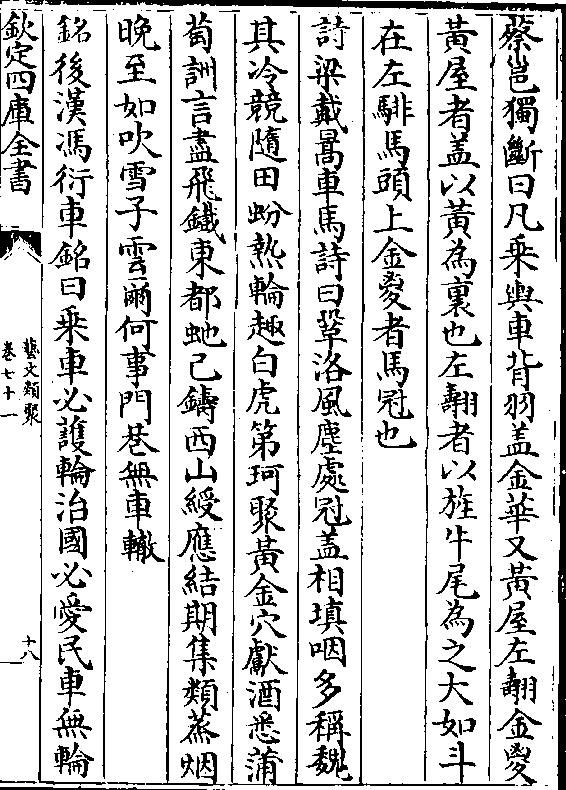 蔡邕獨斷曰凡乗輿車背羽盖金華又黄屋左翿金㚇
黄屋者盖以黄為裏也左翿者以旄牛尾為之大如斗
在左騑馬頭上金㚇者馬冠也
詩梁戴暠車馬詩曰鞏洛風塵處冠盖相填咽多稱魏
其冷競隨田蚡熱輪趣白虎第珂聚黄金穴獻酒悉蒲
萄詶言盡飛鐵東都虵已鑄西山綬應結期集類蒸烟
晚至如吹雪子雲爾何事門巷無車轍
銘後漢馮衍車銘曰乗車必䕶輪治國必愛民車無輪
欽定四庫全書
藝文類聚
卷七十一
十八